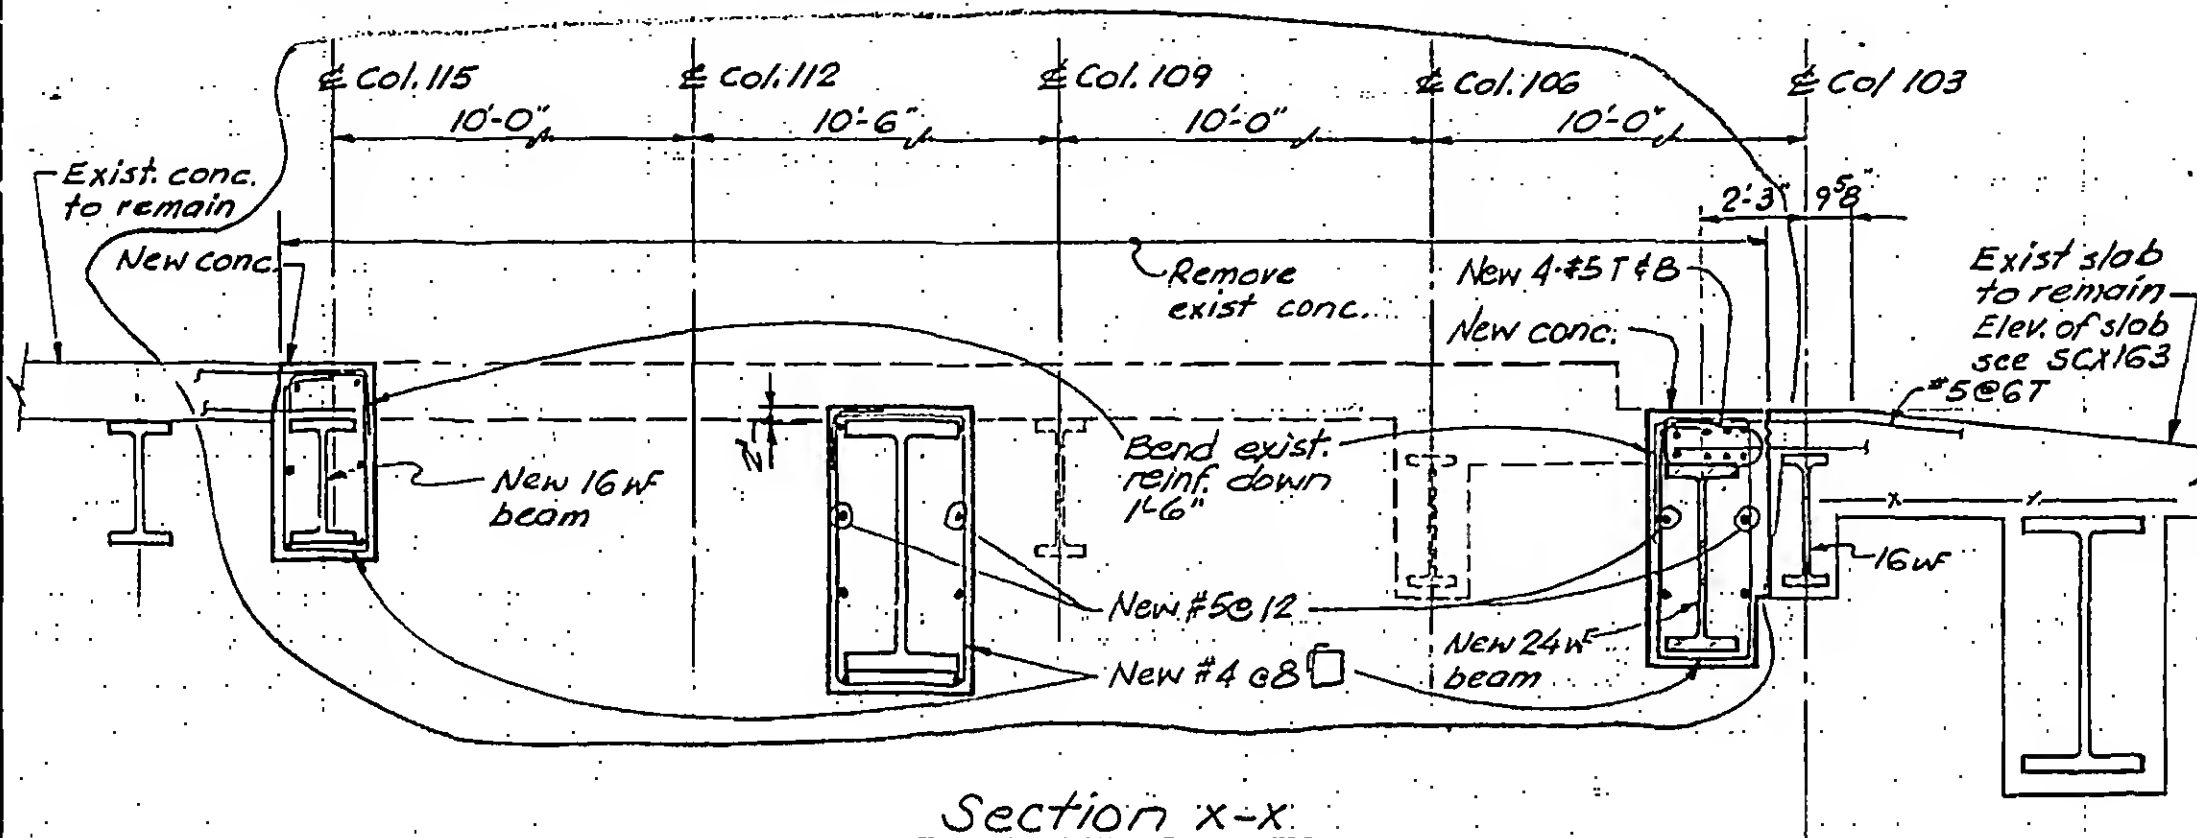 ℄ Col. 115
℄ Col. 112
℄ Col. 109
℄ Col. 106
℄ Col 103
10'-0"
10'-6"
10'-0"
10'-0"
2'-3"
9 5/8"
Exist. conc.
to remain
New conc.
Remove
exist conc.
New 4-#5 T & B
New conc.
Exist slab
to remain
Elev. of slab
see SCX163
#5@6T
2"
Bend exist.
reinf. down
1'-6"
New 16 WF
beam
16 WF
New #5@12
New #4 @8
New 24 WF
beam
Section X-X